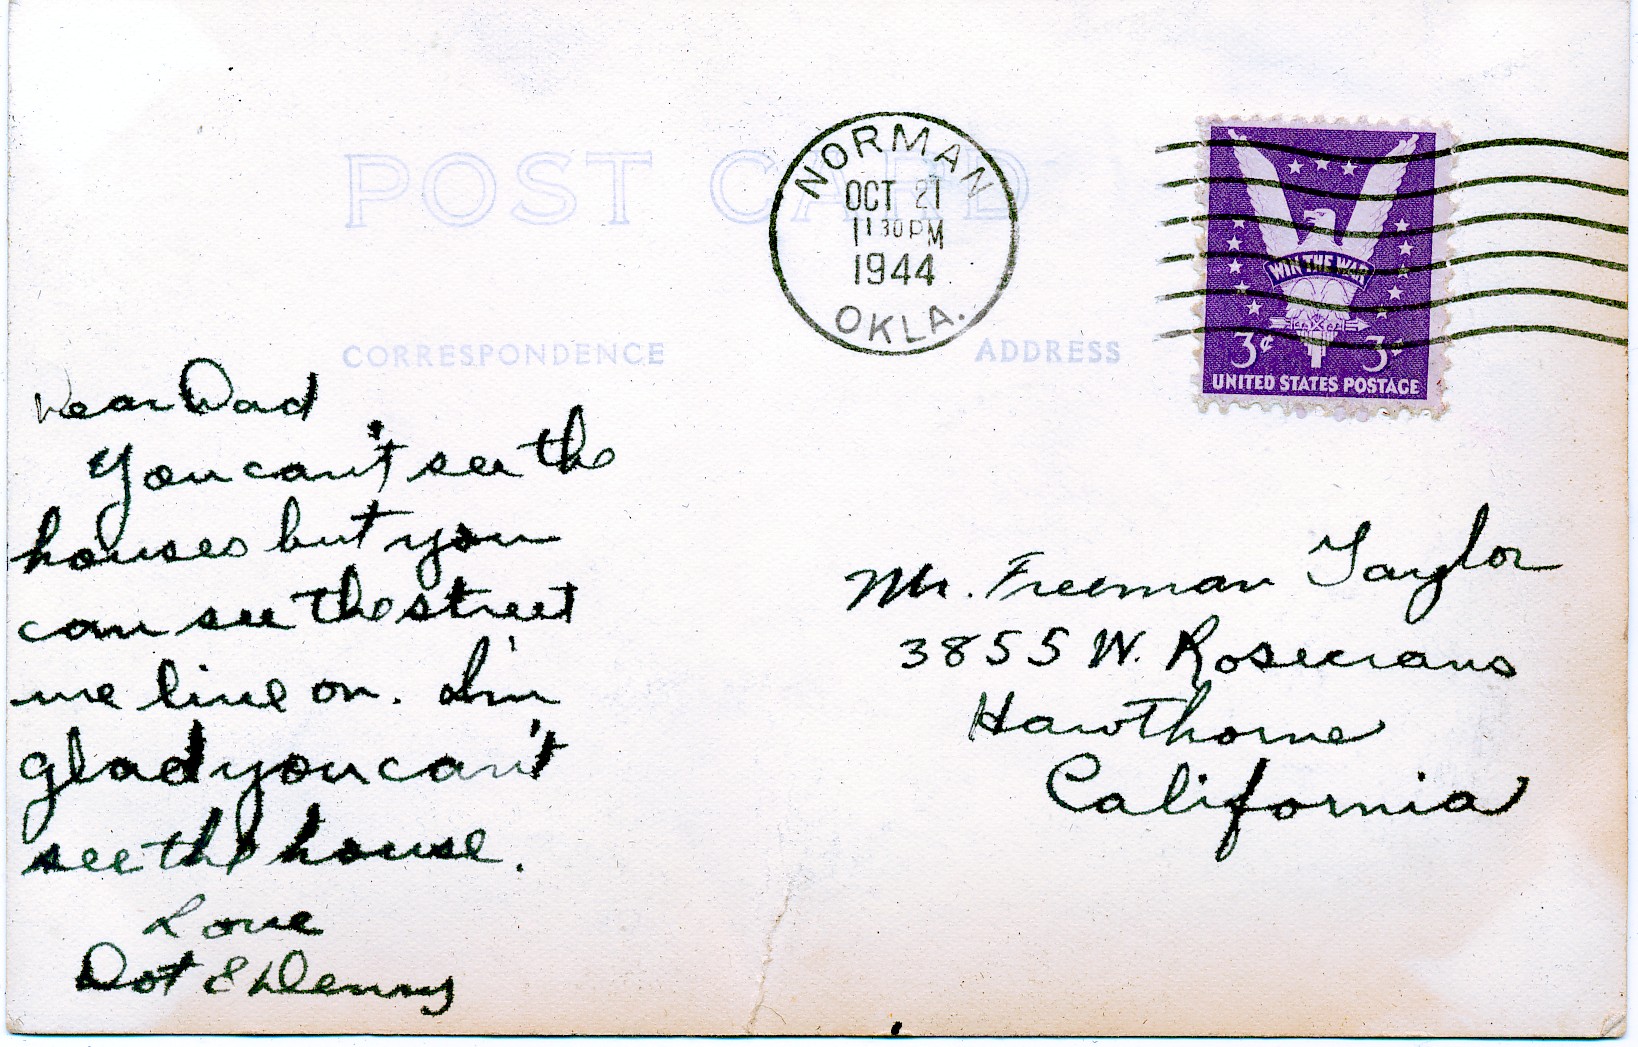 POST CARD
NORMAN
OCT 21
11 30 PM
1944
OKLA.
WIN THE WAR
3¢ 3¢
UNITED STATES POSTAGE
CORRESPONDENCE
ADDRESS
Dear Dad
You can't see the
houses but you
can see the street
we live on. I'm
glad you can't
see the house.
Love
Dot & Denny
Mr. Freeman Taylor
3855 W. Rosecrans
Hawthorne
California